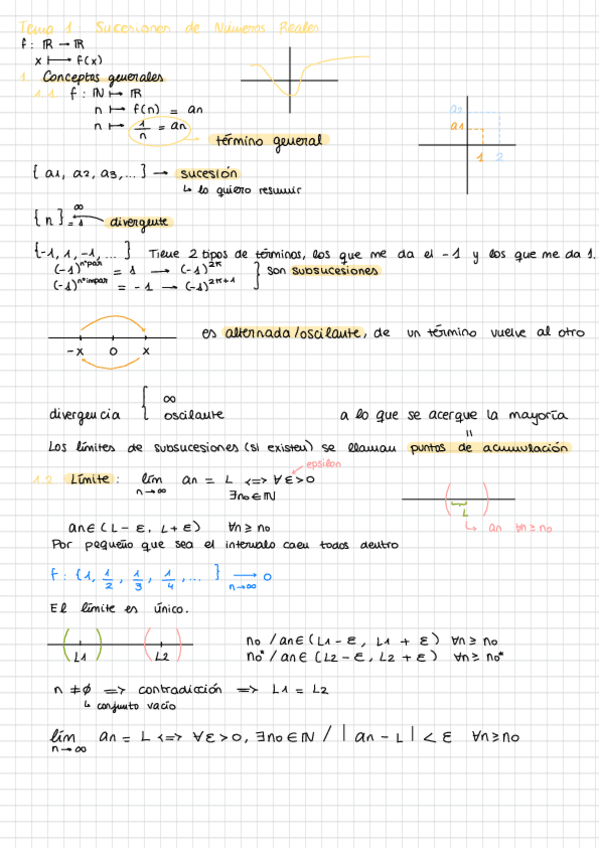 Tema 1: Sucesiones de Números Reales
f: ℝ → ℝ
x ↦ f(x)
1. Conceptos generales
1.1. f: ℕ ↦ ℝ
n ↦ f(n) = an
n ↦ 1/n = an → término general
a2
a1
1 2
{a1, a2, a3, ...} → sucesión
↳ lo quiero resumir
{n}∞ = 1 → divergente
{-1, 1, -1, ...} Tiene 2 tipos de términos, los que me da el -1 y los que me da 1.
(-1)^nºpar = 1 → (-1)^2n } son subsucesiones
(-1)^nºimpar = -1 → (-1)^2n+1
-x 0 x
es alternada/oscilante, de un término vuelve al otro
divergencia { ∞
oscilante
a lo que se acerque la mayoría
=
Los límites de subsucesiones (si existen) se llaman puntos de acumulación
1.2. Límite: lím n→∞ an = L <=> ∀ ε > 0
epsilon
∃no∈ℕ
L
↳ an ∀n≥no
an∈(L-ε, L+ε) ∀n≥no
Por pequeño que sea el intervalo caen todos dentro
f: {1, 1/2, 1/3, 1/4, ...} → n→∞ 0
El límite es único.
L1 L2
no / an∈(L1-ε, L1+ε) ∀n≥no
no* / an∈(L2-ε, L2+ε) ∀n≥no*
n ≠ ∅ => contradicción => L1 = L2
↳ conjunto vacío
lím n→∞ an = L <=> ∀ε>0, ∃no∈ℕ / |an - L| < ε ∀n≥no